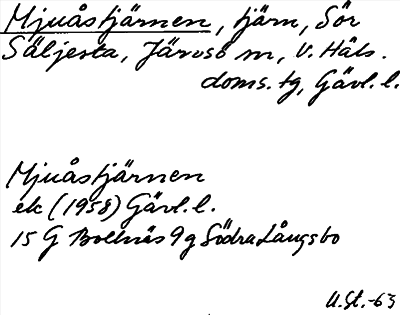 Mjuåstjärnen, tjärn, Sör
Säljesta, Järvsö sn, V. Häls.
doms. tg, Gävl. l.
Mjuåstjärnen
ek (1958) Gävl. l.
15 G Bollnäs 9 g Södra Långsbo
U.St.-63